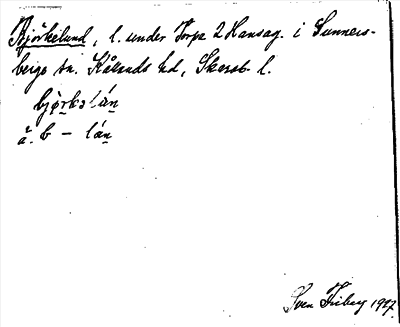 Björkelund, l. under Torpa 2 Hansag. i Sunners-
bergs sn. Kållands hd, Skarab. l.
bjọrkəlán
å. b – lán
Sven Friberg 1927.